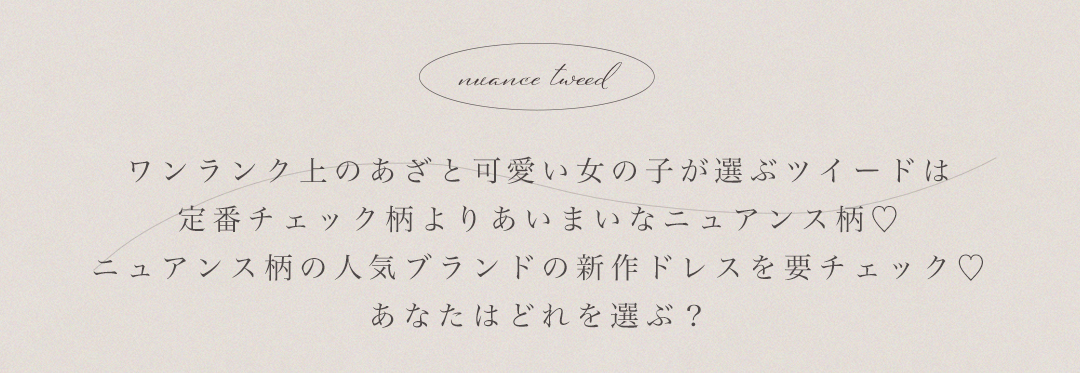 nuance tweed
ワンランク上のあざと可愛い女の子が選ぶツイードは
定番チェック柄よりあいまいなニュアンス柄♡
ニュアンス柄の人気ブランドの新作ドレスを要チェック♡
あなたはどれを選ぶ？